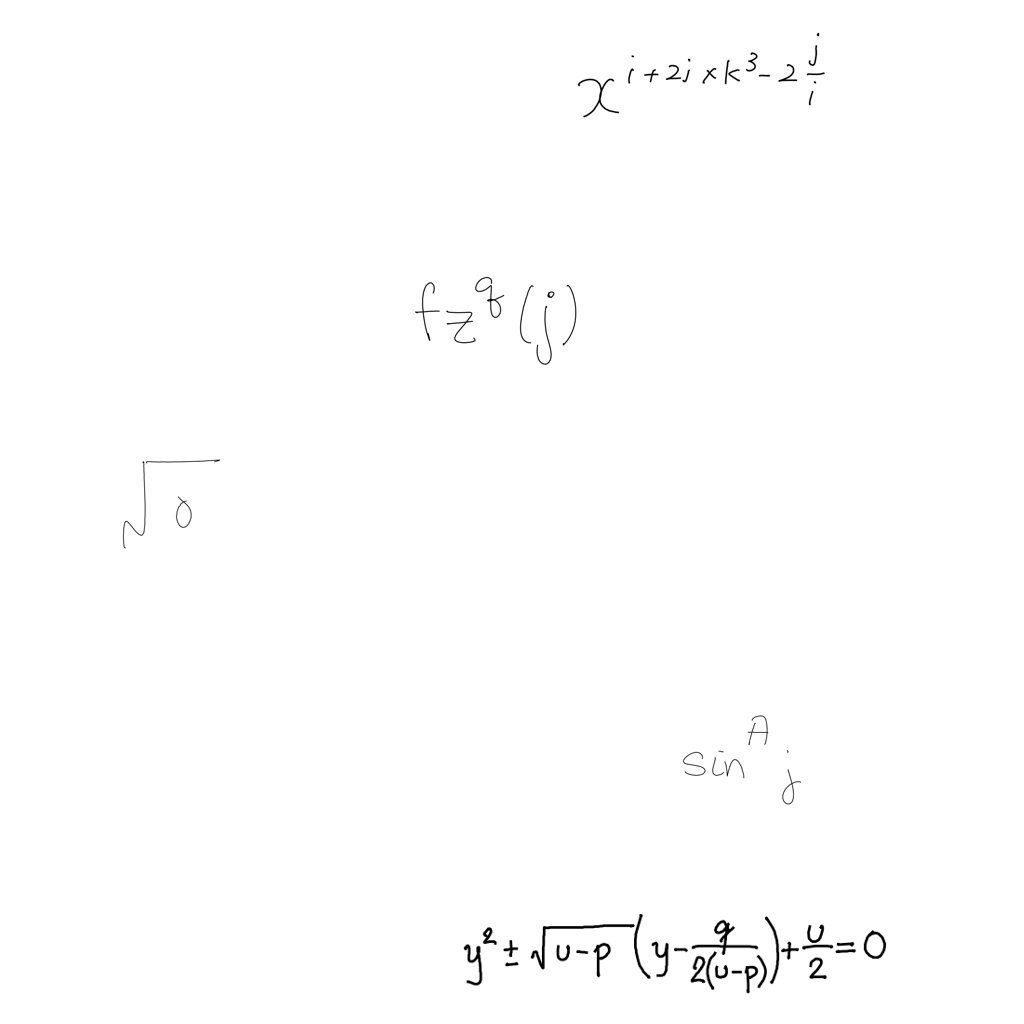 x^{i+2j×k^3-2\frac{j}{i}}
fz^q(j)
\sqrt{0}
sin^A j
y^2 ± \sqrt{u-p}(y-\frac{q}{2(u-p)})+\frac{u}{2}=0